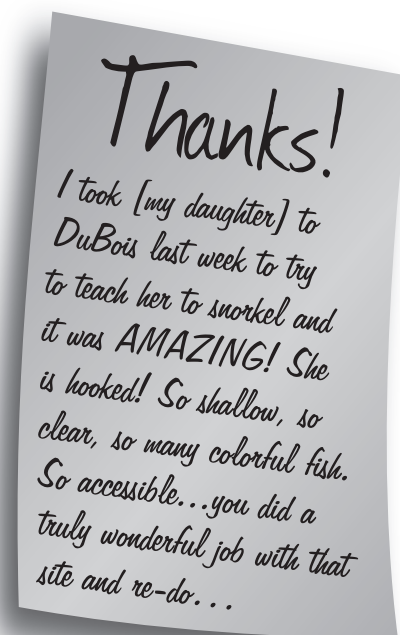 Thanks!
I took [my daughter] to
DuBois last week to try
to teach her to snorkel and
it was AMAZING! She
is hooked! So shallow, so
clear, so many colorful fish.
So accessible...you did a
truly wonderful job with that
site and re-do...